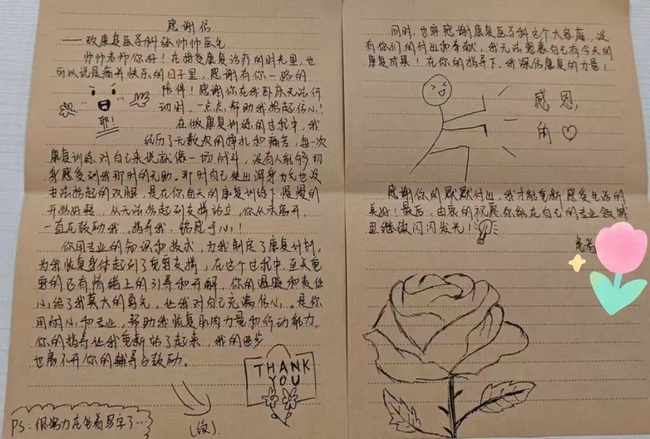 感谢信
——致康复医学科张帅帅医生
帅帅老师你好！在接受康复治疗的时光里，也
可以说是痛并快乐的日子里，感谢有你一路的
陪伴！感谢你在我卧床无法行
动时，一点点帮助我燃起信心！
耶！
在做康复训练的过程中，我
经历了无数次的挣扎和痛苦，每一次
康复训练对自己来说就像一场战斗，没有人能够切
身感受到我那时的无助。那时自己使出浑身力气也没
办法抬起的双腿，是在你每天的康复训练下慢慢的
开始好转，从无法抬起到支撑站立，你从未离开，
一直在鼓励我，指导我，铭感于心！
你用专业的知识和技术，为我制定了康复计划，
为我恢复身体起到了重要支撑，在这个过程中，至关重
要的还有情绪上的引导和开解，你的温暖和责任
心给了我莫大的勇气，也让我对自己充满信心。是你
用耐心和专业，帮助我恢复肌肉力量和行动能力。
你的指导让我重新站了起来，我的进步
也离不开你的辅导与鼓励。
THANK
YOU
PS：很努力在写字了…
（续）
同时，也要感谢康复医学科这个大家庭，没
有你们的付出和奉献，我无法想象自己有今天的
康复成果！在你的指导下，我深信康复的力量！
感恩，
的♡
感谢你的默默付出，我才能重新感受生活的
美好！最后，由衷的祝愿你能在自己的专业领域
里继续闪闪发光！